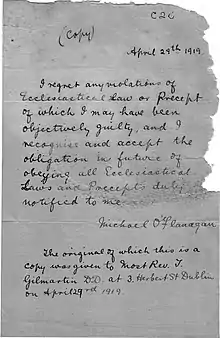 C26
(Copy)
April 29th 1919.
I regret any violations of
Ecclesiastical Law or Precept
of which I may have been
objectively guilty, and I
recognise and accept the
obligation in future of
obeying all Ecclesiastical
Laws and Precepts duly
notified to me
Michael O'Flanagan
The original of which this is a
copy was given to Most Rev. T.
Gilmartin D.D. at 3. Herbert St Dublin
on April 29rd 1919.